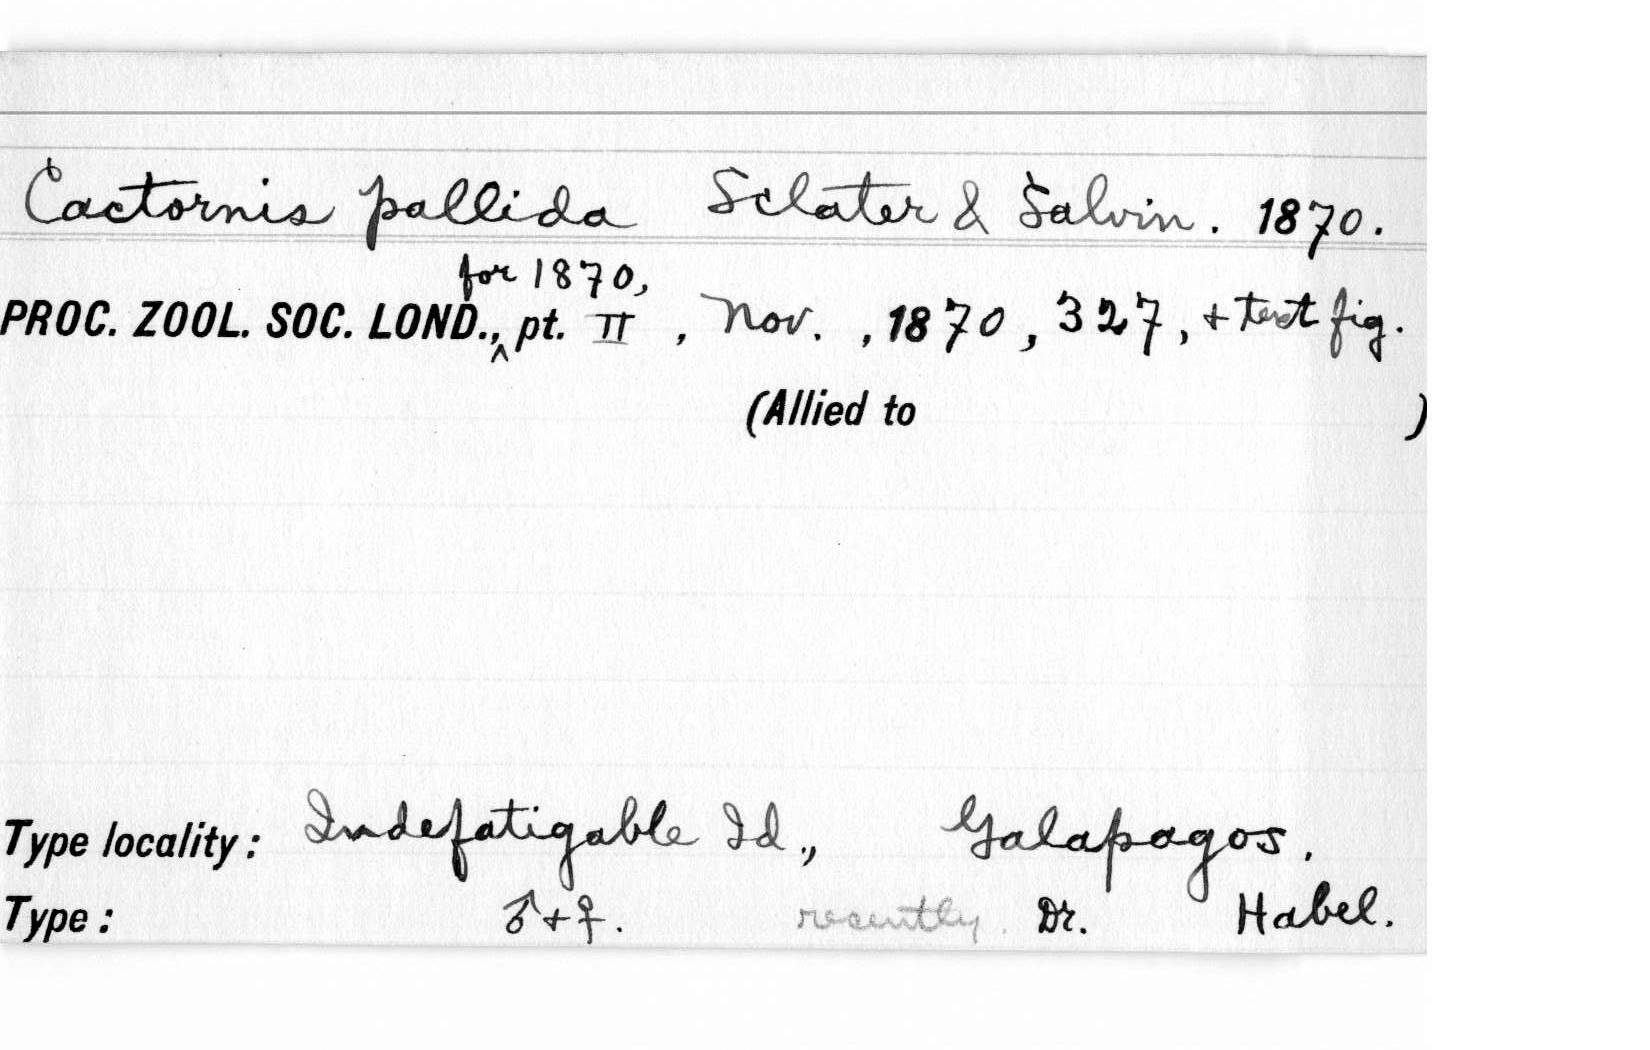 Cactornis pallida Sclater & Salvin. 1870.
for 1870,
PROC. ZOOL. SOC. LOND., ^ pt. II, Nov., 1870, 327, + text fig.
(Allied to )
Type locality: Indefatigable Id., Galapagos.
Type: ♂ + ♀. recently. Dr. Habel.